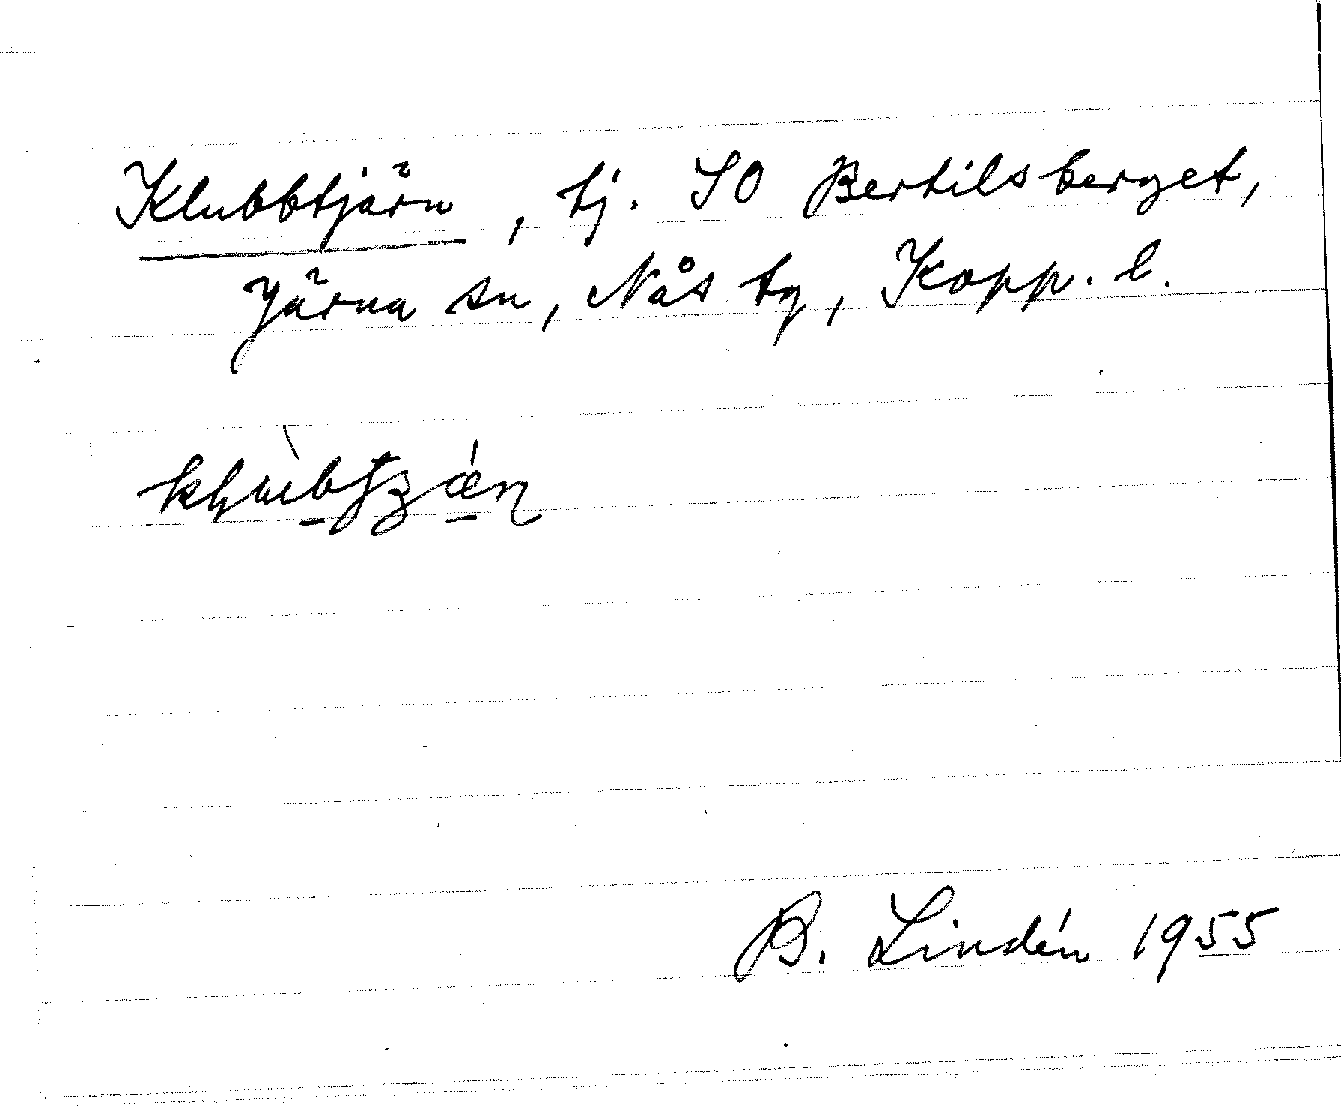 Klubbtjärn, tj. SO Bertilsberget,
Järna sn, Nås tg, Kopp. l.
B. Lindén 1955